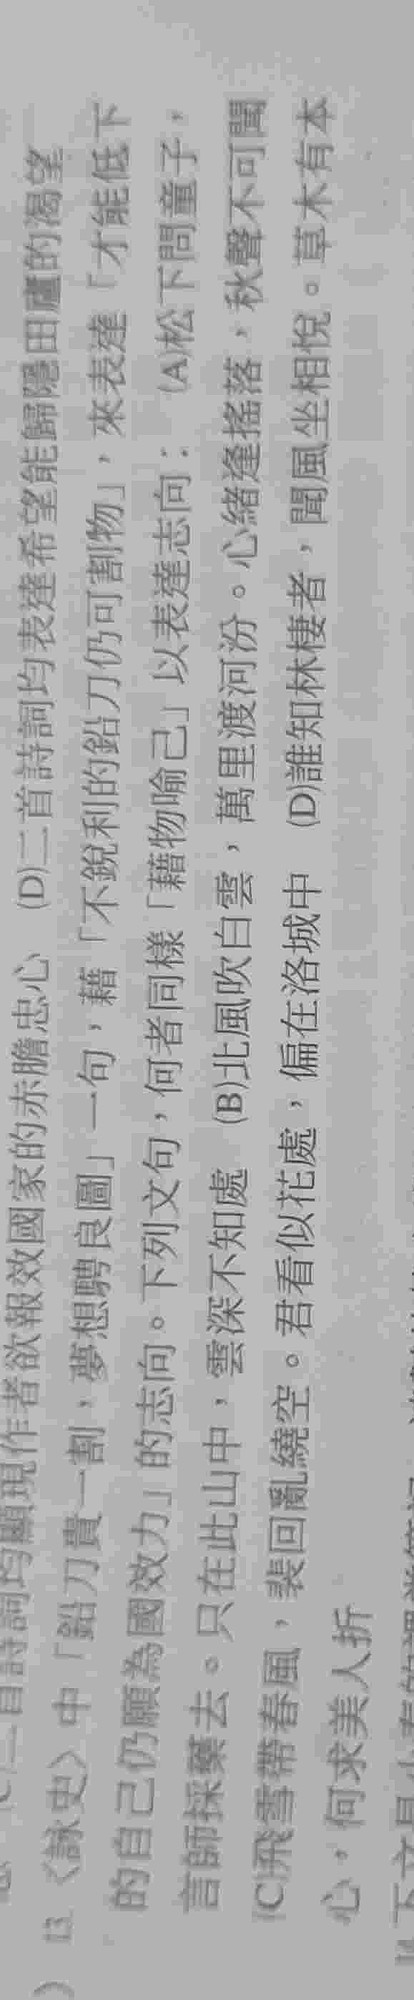 (C)二首詩詞均顯現作者欲報效國家的赤膽忠心 (D)二首詩詞均表達希望能歸隱田廬的渴望
) 13. 〈詠史〉中「鉛刀貴一割,夢想騁良圖」一句,藉「不銳利的鉛刀仍可割物」,來表達「才能低下
的自己仍願為國效力」的志向。下列文句,何者同樣「藉物喻己」以表達志向: (A)松下問童子,
言師採藥去。只在此山中,雲深不知處 (B)北風吹白雲,萬里渡河汾。心緒逢搖落,秋聲不可聞
(C)飛雪帶春風,裴回亂繞空。君看似花處,偏在洛城中 (D)誰知林棲者,聞風坐相悅。草木有本
心,何求美人折
下文是